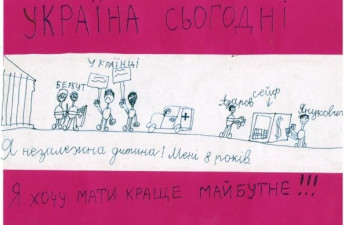 УКРАЇНА СЬОГОДНІ
УКРАЇНЦІ
БЕРКУТ
Азаров
сейф
Янукович
Я незалежна дитина! Мені 8 років
Я ХОЧУ МАТИ КРАЩЕ МАЙБУТНЕ!!!